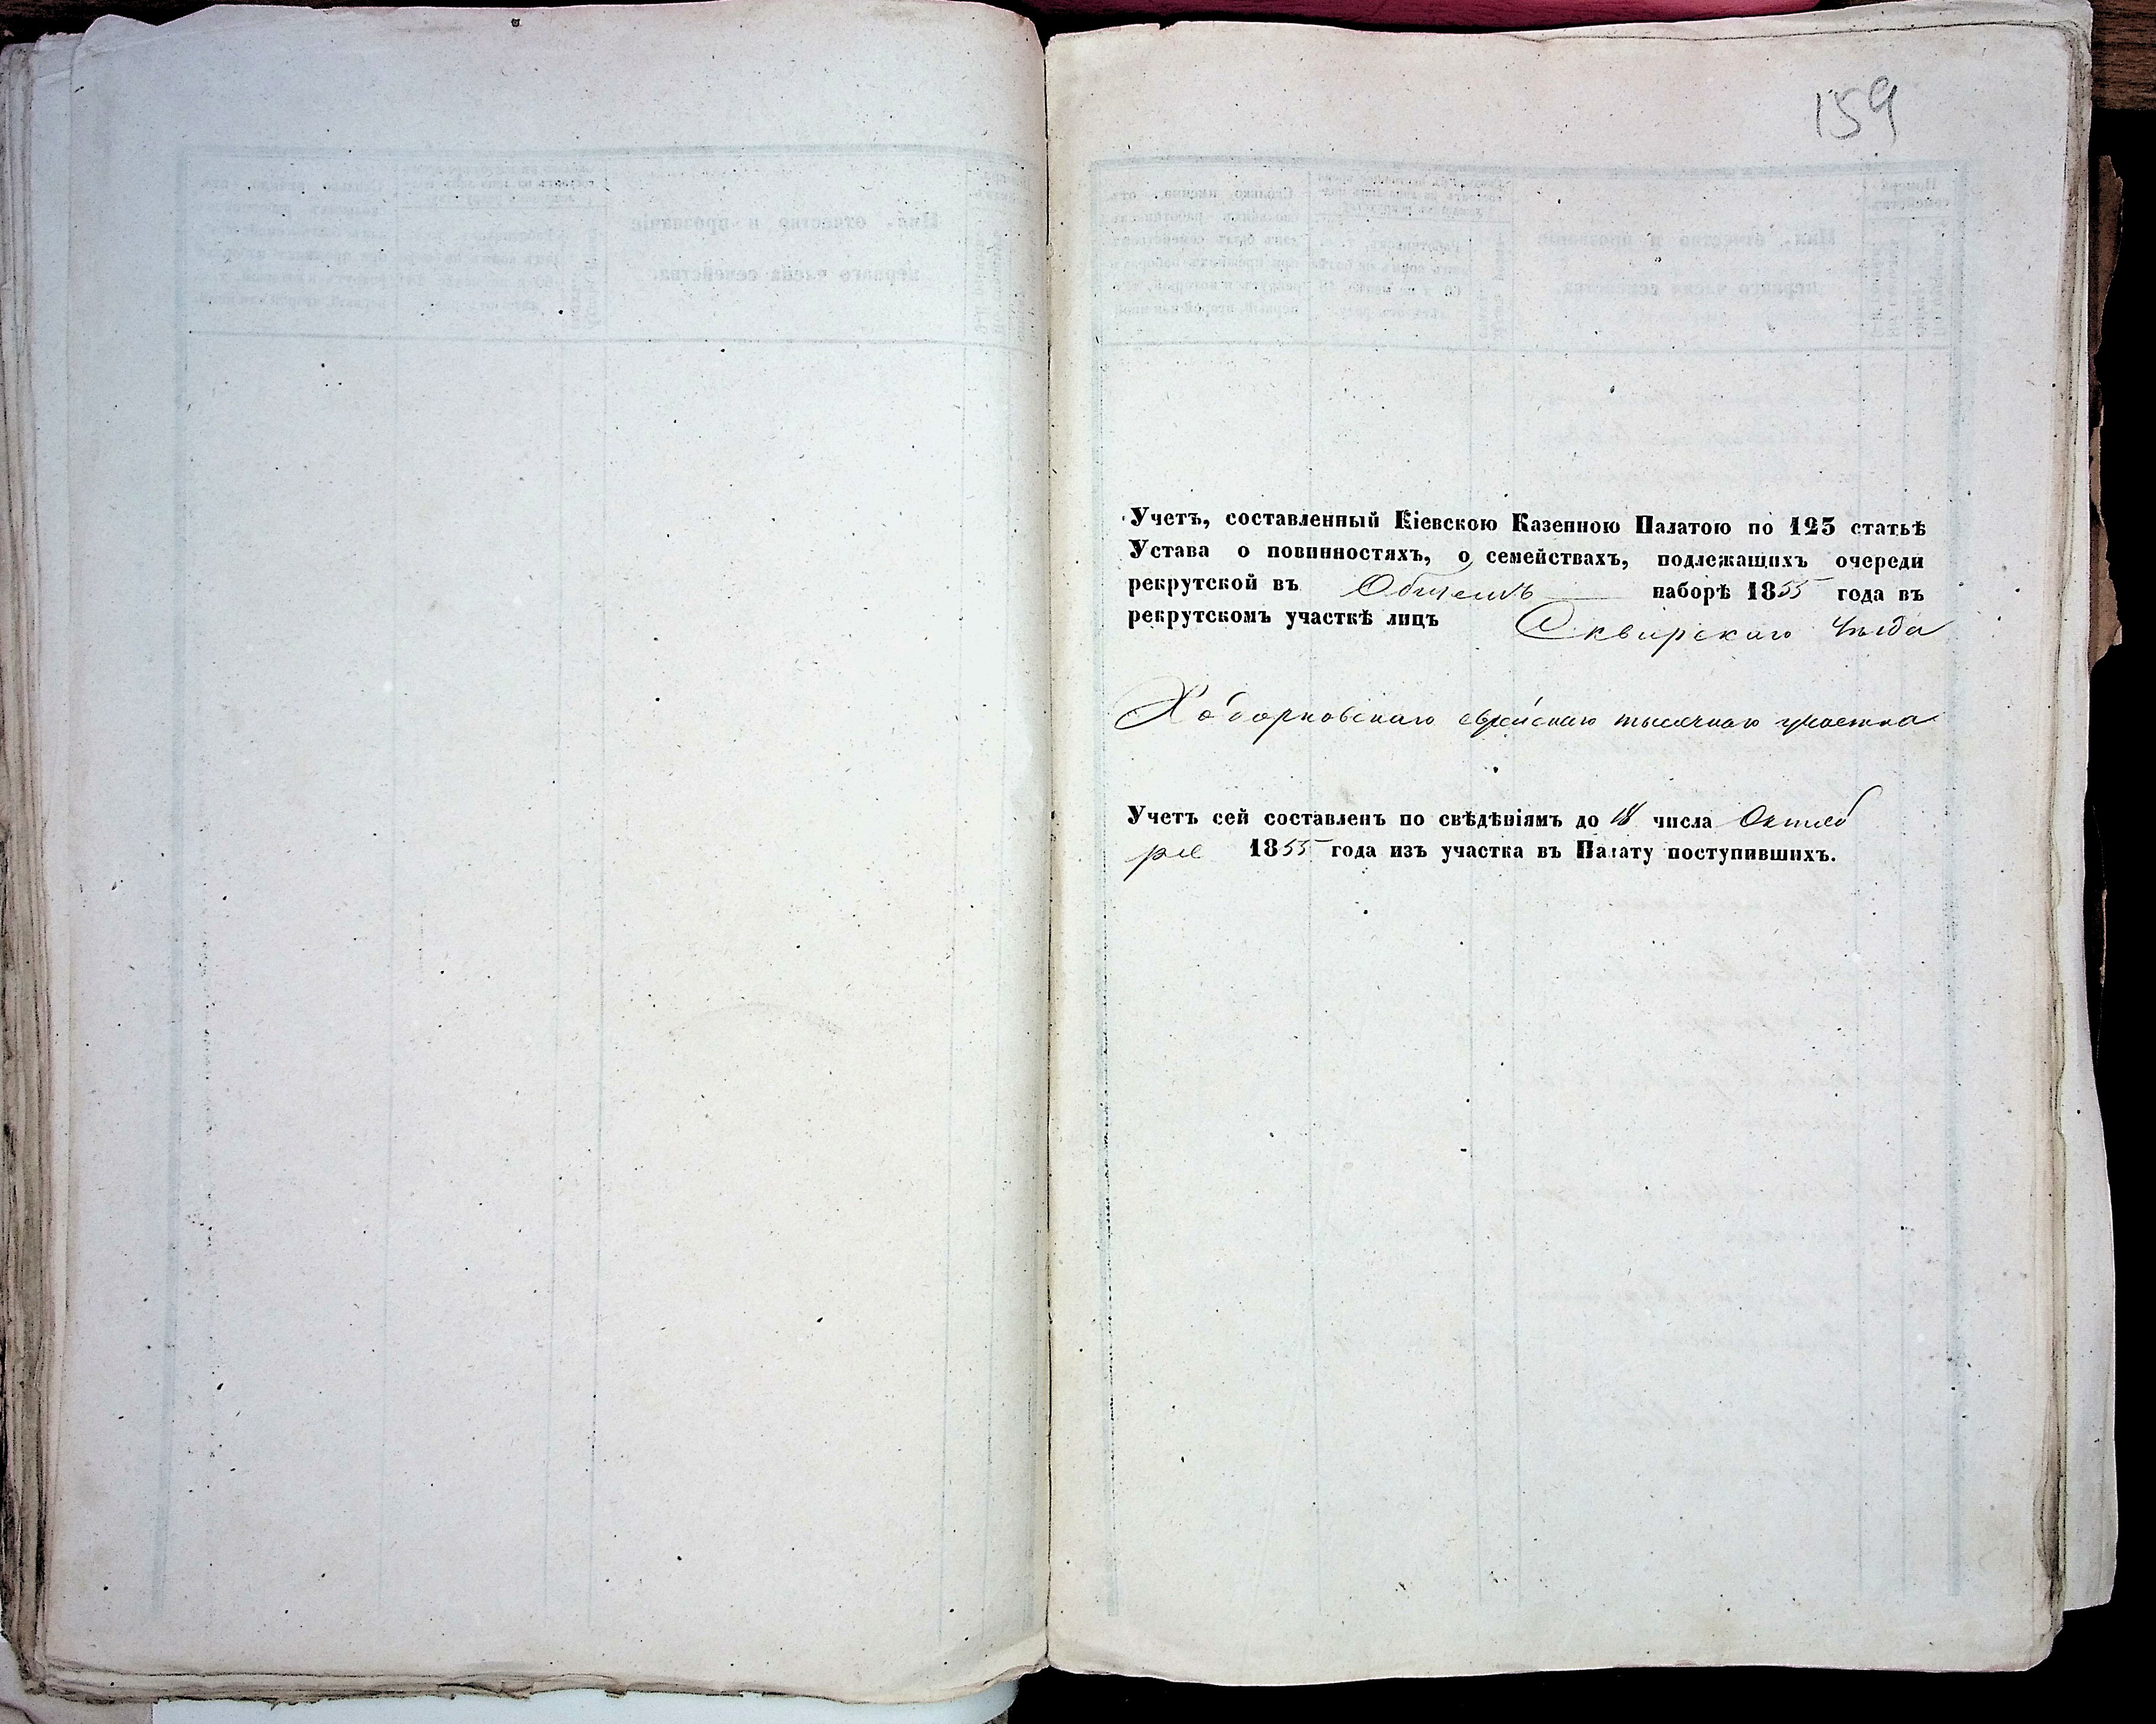 159
Учетъ, составленный Кіевскою Казенною Палатою по 125 статьѣ
Устава о повинностяхъ, о семействахъ, подлежащихъ очереди
рекрутской въ Общемъ наборѣ 1855 года въ
рекрутскомъ участкѣ лицъ Сквирскаго Уѣзда
Ходорковскаго еврейскаго тысячнаго участка
Учетъ сей составленъ по свѣдѣніямъ до 18 числа Октяб
ря 1855 года изъ участка въ Палату поступившихъ.